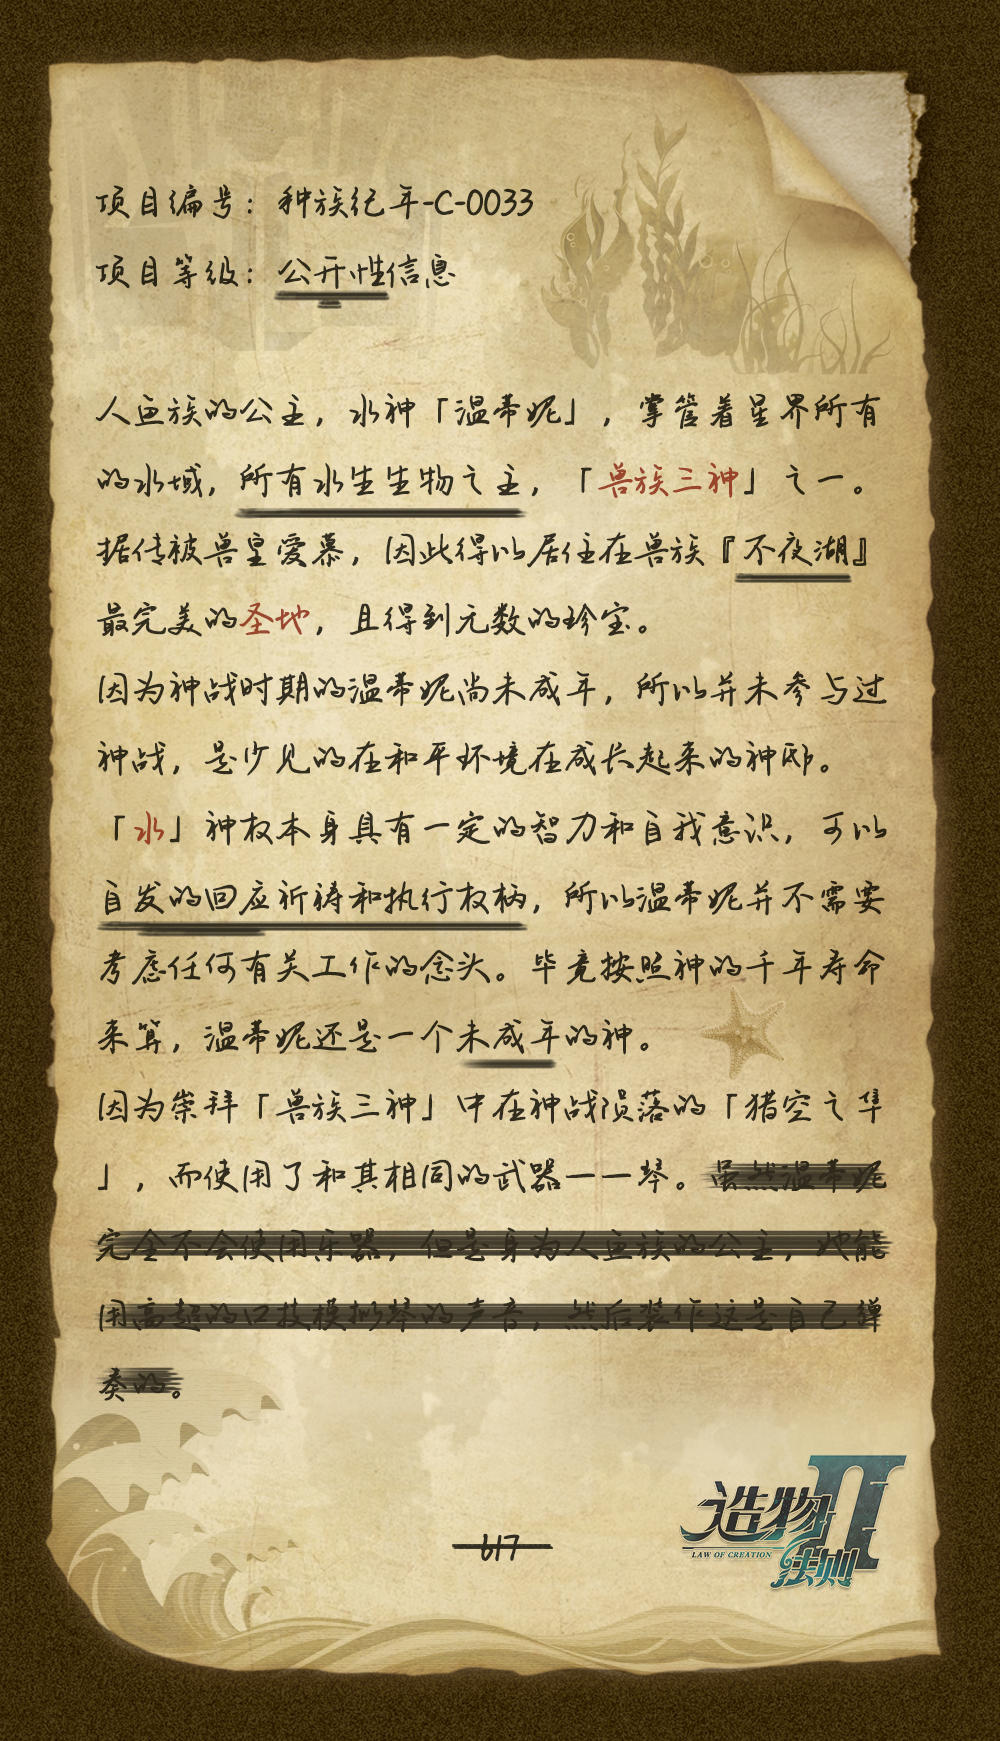 项目编号：种族纪年-C-0033
项目等级：公开性信息
人鱼族的公主，水神「温蒂妮」，掌管着星界所有
的水域，所有水生生物之主，「兽族三神」之一。
据传被兽皇爱慕，因此得以居住在兽族『不夜湖』
最完美的圣地，且得到无数的珍宝。
因为神战时期的温蒂妮尚未成年，所以并未参与过
神战，是少见的在和平环境在成长起来的神邸。
「水」神权本身具有一定的智力和自我意识，可以
自发的回应祈祷和执行权柄，所以温蒂妮并不需要
考虑任何有关工作的念头。毕竟按照神的千年寿命
来算，温蒂妮还是一个未成年的神。
因为崇拜「兽族三神」中在神战陨落的「猎空之隼
」，而使用了和其相同的武器一一琴。虽然温蒂妮
完全不会使用乐器，但是身为人鱼族的公主，她能
用高超的口技模拟琴的声音，然后装作这是自己弹
奏的。
617
造物法则II
LAW OF CREATION